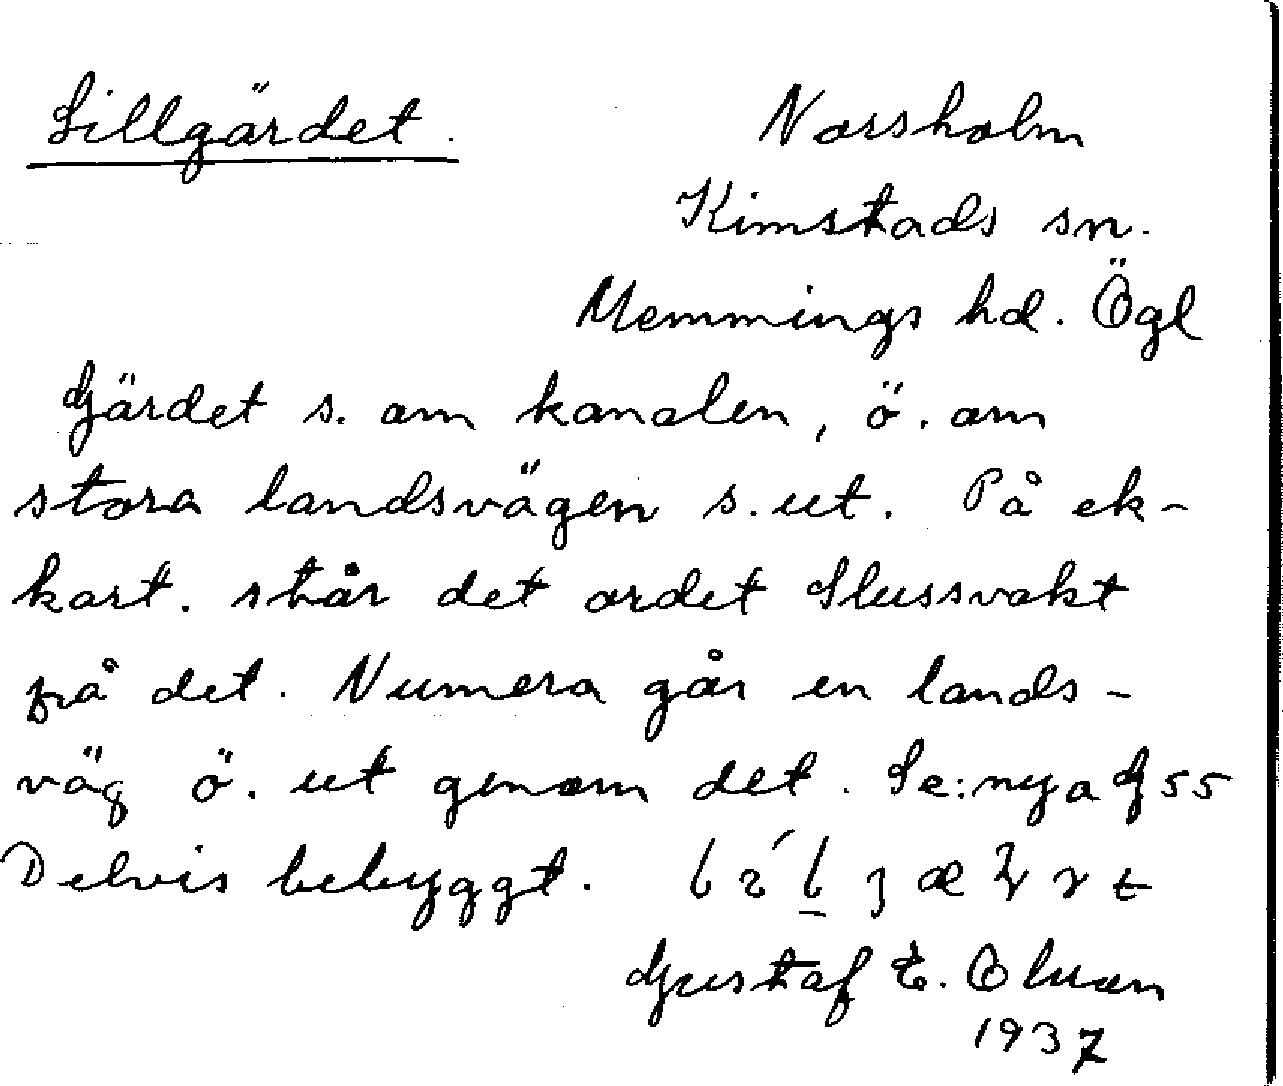 Sillgärdet.
Norsholm
Kimstads sn.
Memmings hd. Ögl
Gärdet s. om kanalen, ö. om
stora landsvägen s. ut. På ek-
kart. står det ordet Slussvakt
på det. Numera går en lands-
väg ö. ut genom det. Se: nya G 55
Delvis bebyggt.
Gustaf E.
1937